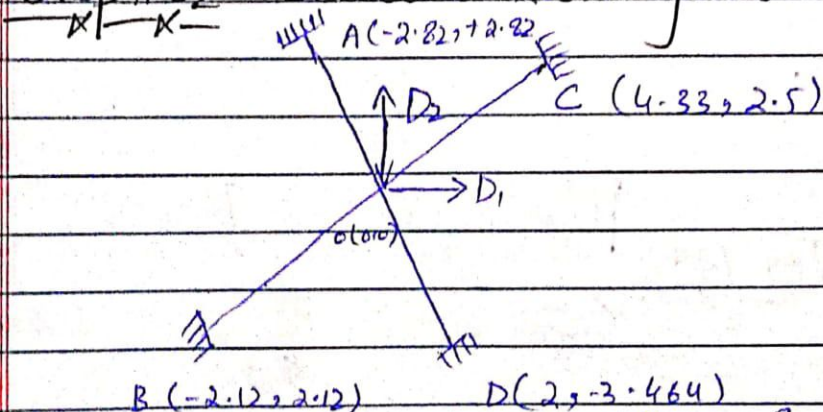 A (-2.82, +2.82
C (4.33, 2.5)
D2
D1
O(0,0)
B (-2.12, 2.12)
D(2, -3.464)